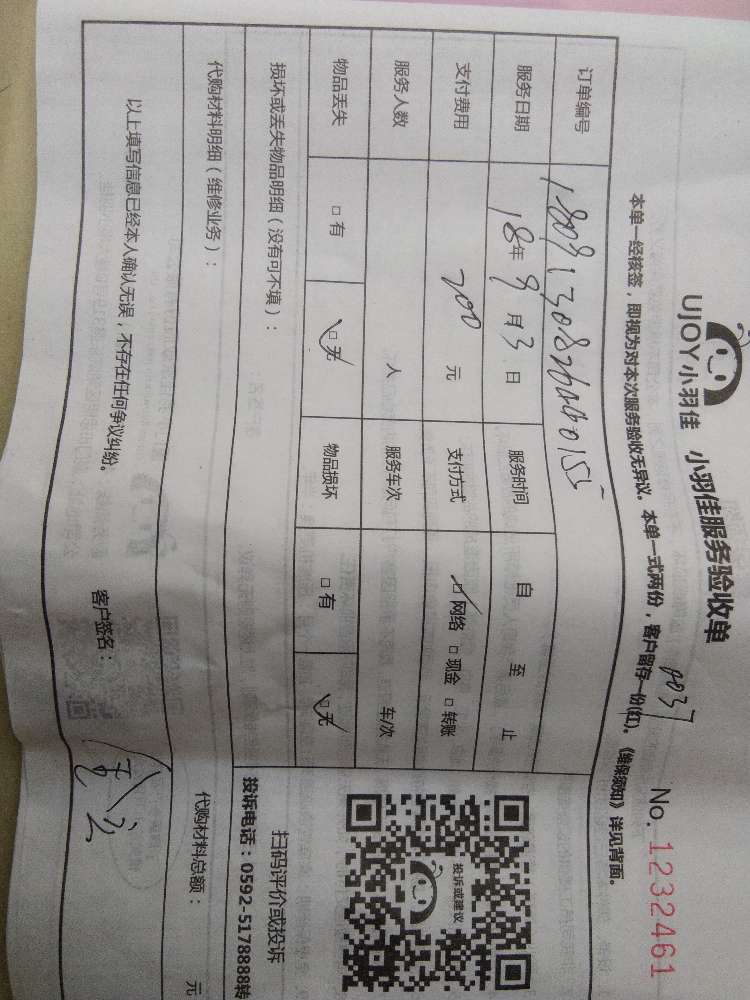 UJOY小羽佳 小羽佳服务验收单
No. 1232461
本单一经核签，即视为对本次服务验收无异议。本单一式两份，客户留存一份(红)。《维保须知》详见背面。
订单编号
服务日期 18年9月3日 服务时间 自 至 止
支付费用 200元 支付方式 ☑网络 □现金 □转账
服务人数 人 服务车次 车/次
物品丢失 □有 ☑无 物品损坏 □有 ☑无
损坏或丢失物品明细（没有可不填）：
代购材料明细（维修业务）：
代购材料总额： 元
以上填写信息已经本人确认无误，不存在任何争议纠纷。
客户签名：
投诉或建议
扫码评价或投诉
投诉电话：0592-5178888转